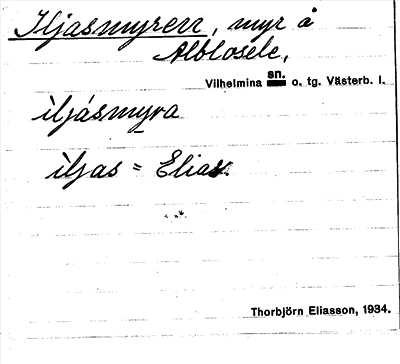 Iljasmyren, myr å
Alblosele,
Vilhelmina sn. o. tg. Västerb. l.
iljásmyra
iljas = Elias.
Thorbjörn Eliasson, 1934.